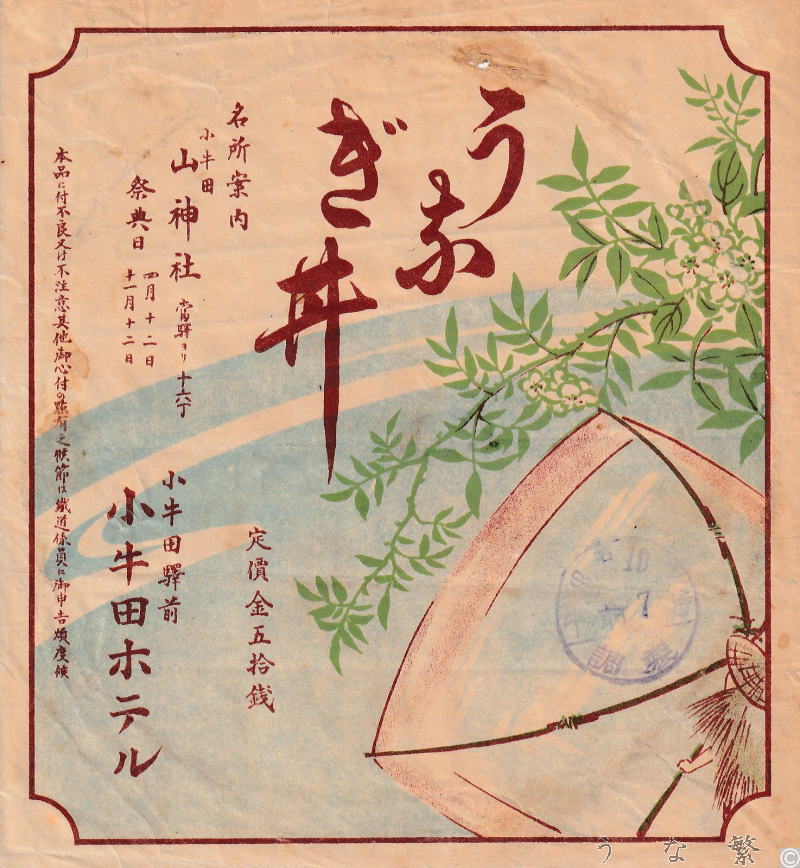 うなぎ丼
名所案内
小牛田
山神社 當驛ヨリ十六丁
祭典日 四月十二日
十一月十二日
本品に付不良又は不注意其他御心付の點有之候節は鐵道係員に御申告煩度候
定價金五拾銭
小牛田驛前
小牛田ホテル
10
7
午前
調製
うな繁